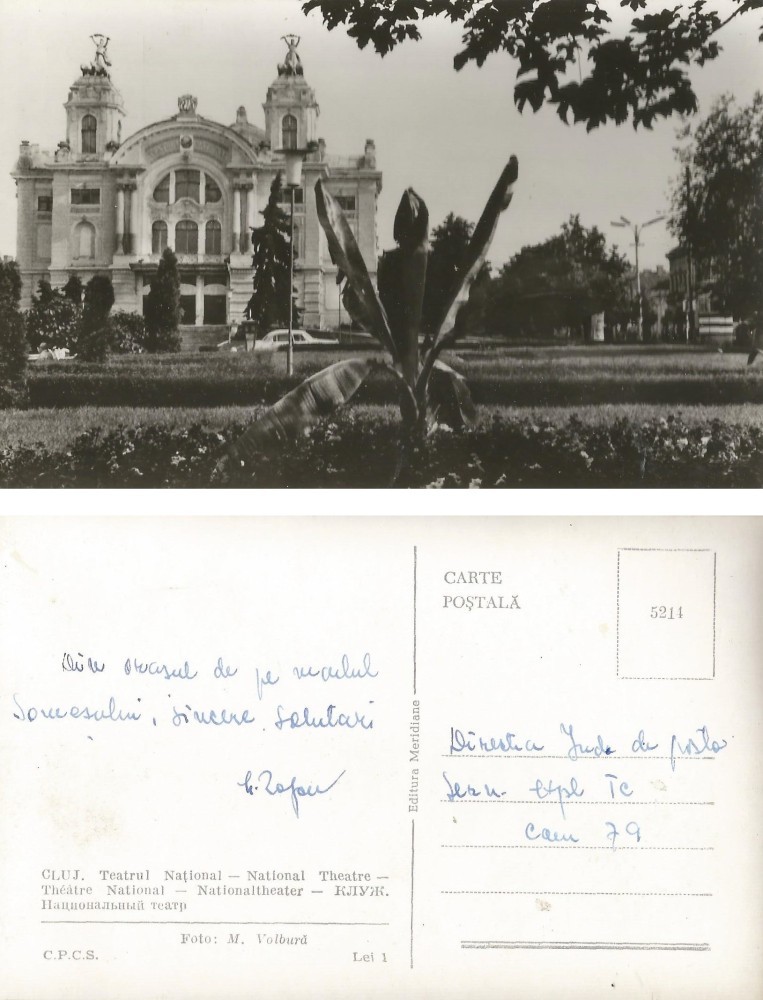 Din orasul de pe malul
Somesului, sincere salutari
CLUJ. Teatrul Național — National Theatre —
Théâtre National — Nationaltheater — КЛУЖ.
Национальный театр
Foto: M. Volbură
C.P.C.S. Lei 1
Editura Meridiane
CARTE
POȘTALĂ
5214
Directia Jude de posta
Serv. expl Tc
Cam 79